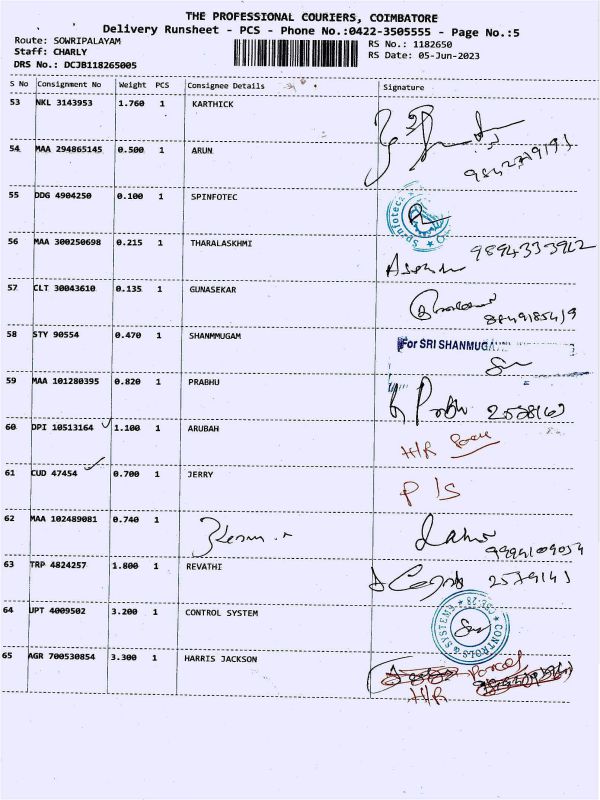 THE PROFESSIONAL COURIERS, COIMBATORE
Delivery Runsheet - PCS - Phone No.:0422-3505555 - Page No.:5
Route: SOWRIPALAYAM
RS No.: 1182650
Staff: CHARLY
RS Date: 05-Jun-2023
DRS No.: DCJB118265005
S No Consignment No Weight PCS Consignee Details Signature
53 NKL 3143953 1.760 1 KARTHICK
54 MAA 294865145 0.500 1 ARUN
55 DDG 4904250 0.100 1 SPINFOTEC
56 MAA 300250698 0.215 1 THARALASKHMI 9894333912
57 CLT 30043610 0.135 1 GUNASEKAR
58 STY 90554 0.470 1 SHANMMUGAM For SRI SHANMUGA
59 MAA 101280395 0.820 1 PRABHU
60 DPI 10513164 1.100 1 ARUBAH H/R
61 CUD 47454 0.700 1 JERRY P/S
62 MAA 102489081 0.740 1
63 TRP 4824257 1.800 1 REVATHI 2579141
64 UPT 4009502 3.200 1 CONTROL SYSTEM CONTROLS & SYSTEMS
65 AGR 700530854 3.300 1 HARRIS JACKSON
H/R